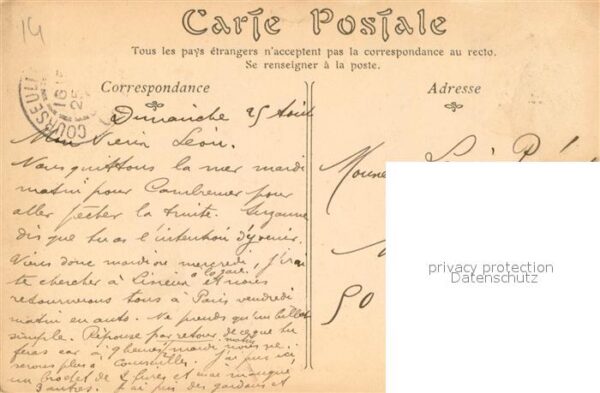 14
Carte Postale
Tous les pays étrangers n'acceptent pas la correspondance au recto.
Se renseigner à la poste.
Correspondance
Adresse
COURSEULL
16
25
Dimanche 25 Août
Mon Vieux Léon.
Nous quittons la mer mardi
matin pour Cambremer pour
aller pêcher la truite. Suzanne
dis que tu as l'intention d'y venir.
Viens donc mardi ou mercredi, j'irai
te chercher à Lisieux à la gare et nous
retournerons tous à Paris vendredi
matin en auto. Ne prends qu'un billet
simple. Réponse par retour de ce que tu
feras car à 9 heures mardi matin nous ne
serons plus à Courseulles. J'ai pris ici,
un brochet de 2 livres et ai manqué
3 autres. J'ai pris des gardons et
50
privacy protection
Datenschutz